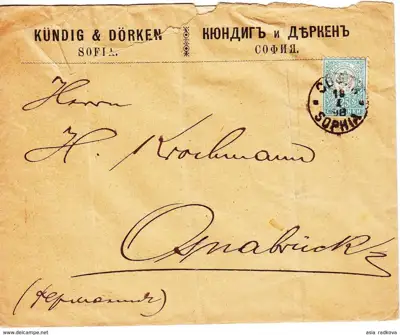 KÜNDIG & DÖRKEN
SOFIA.
КЮНДИГЪ и ДѢРКЕНЪ
СОФИЯ.
SOPHIA
Herrn
H. Krochmann
Osnabrück
(Германия)
asia radkova